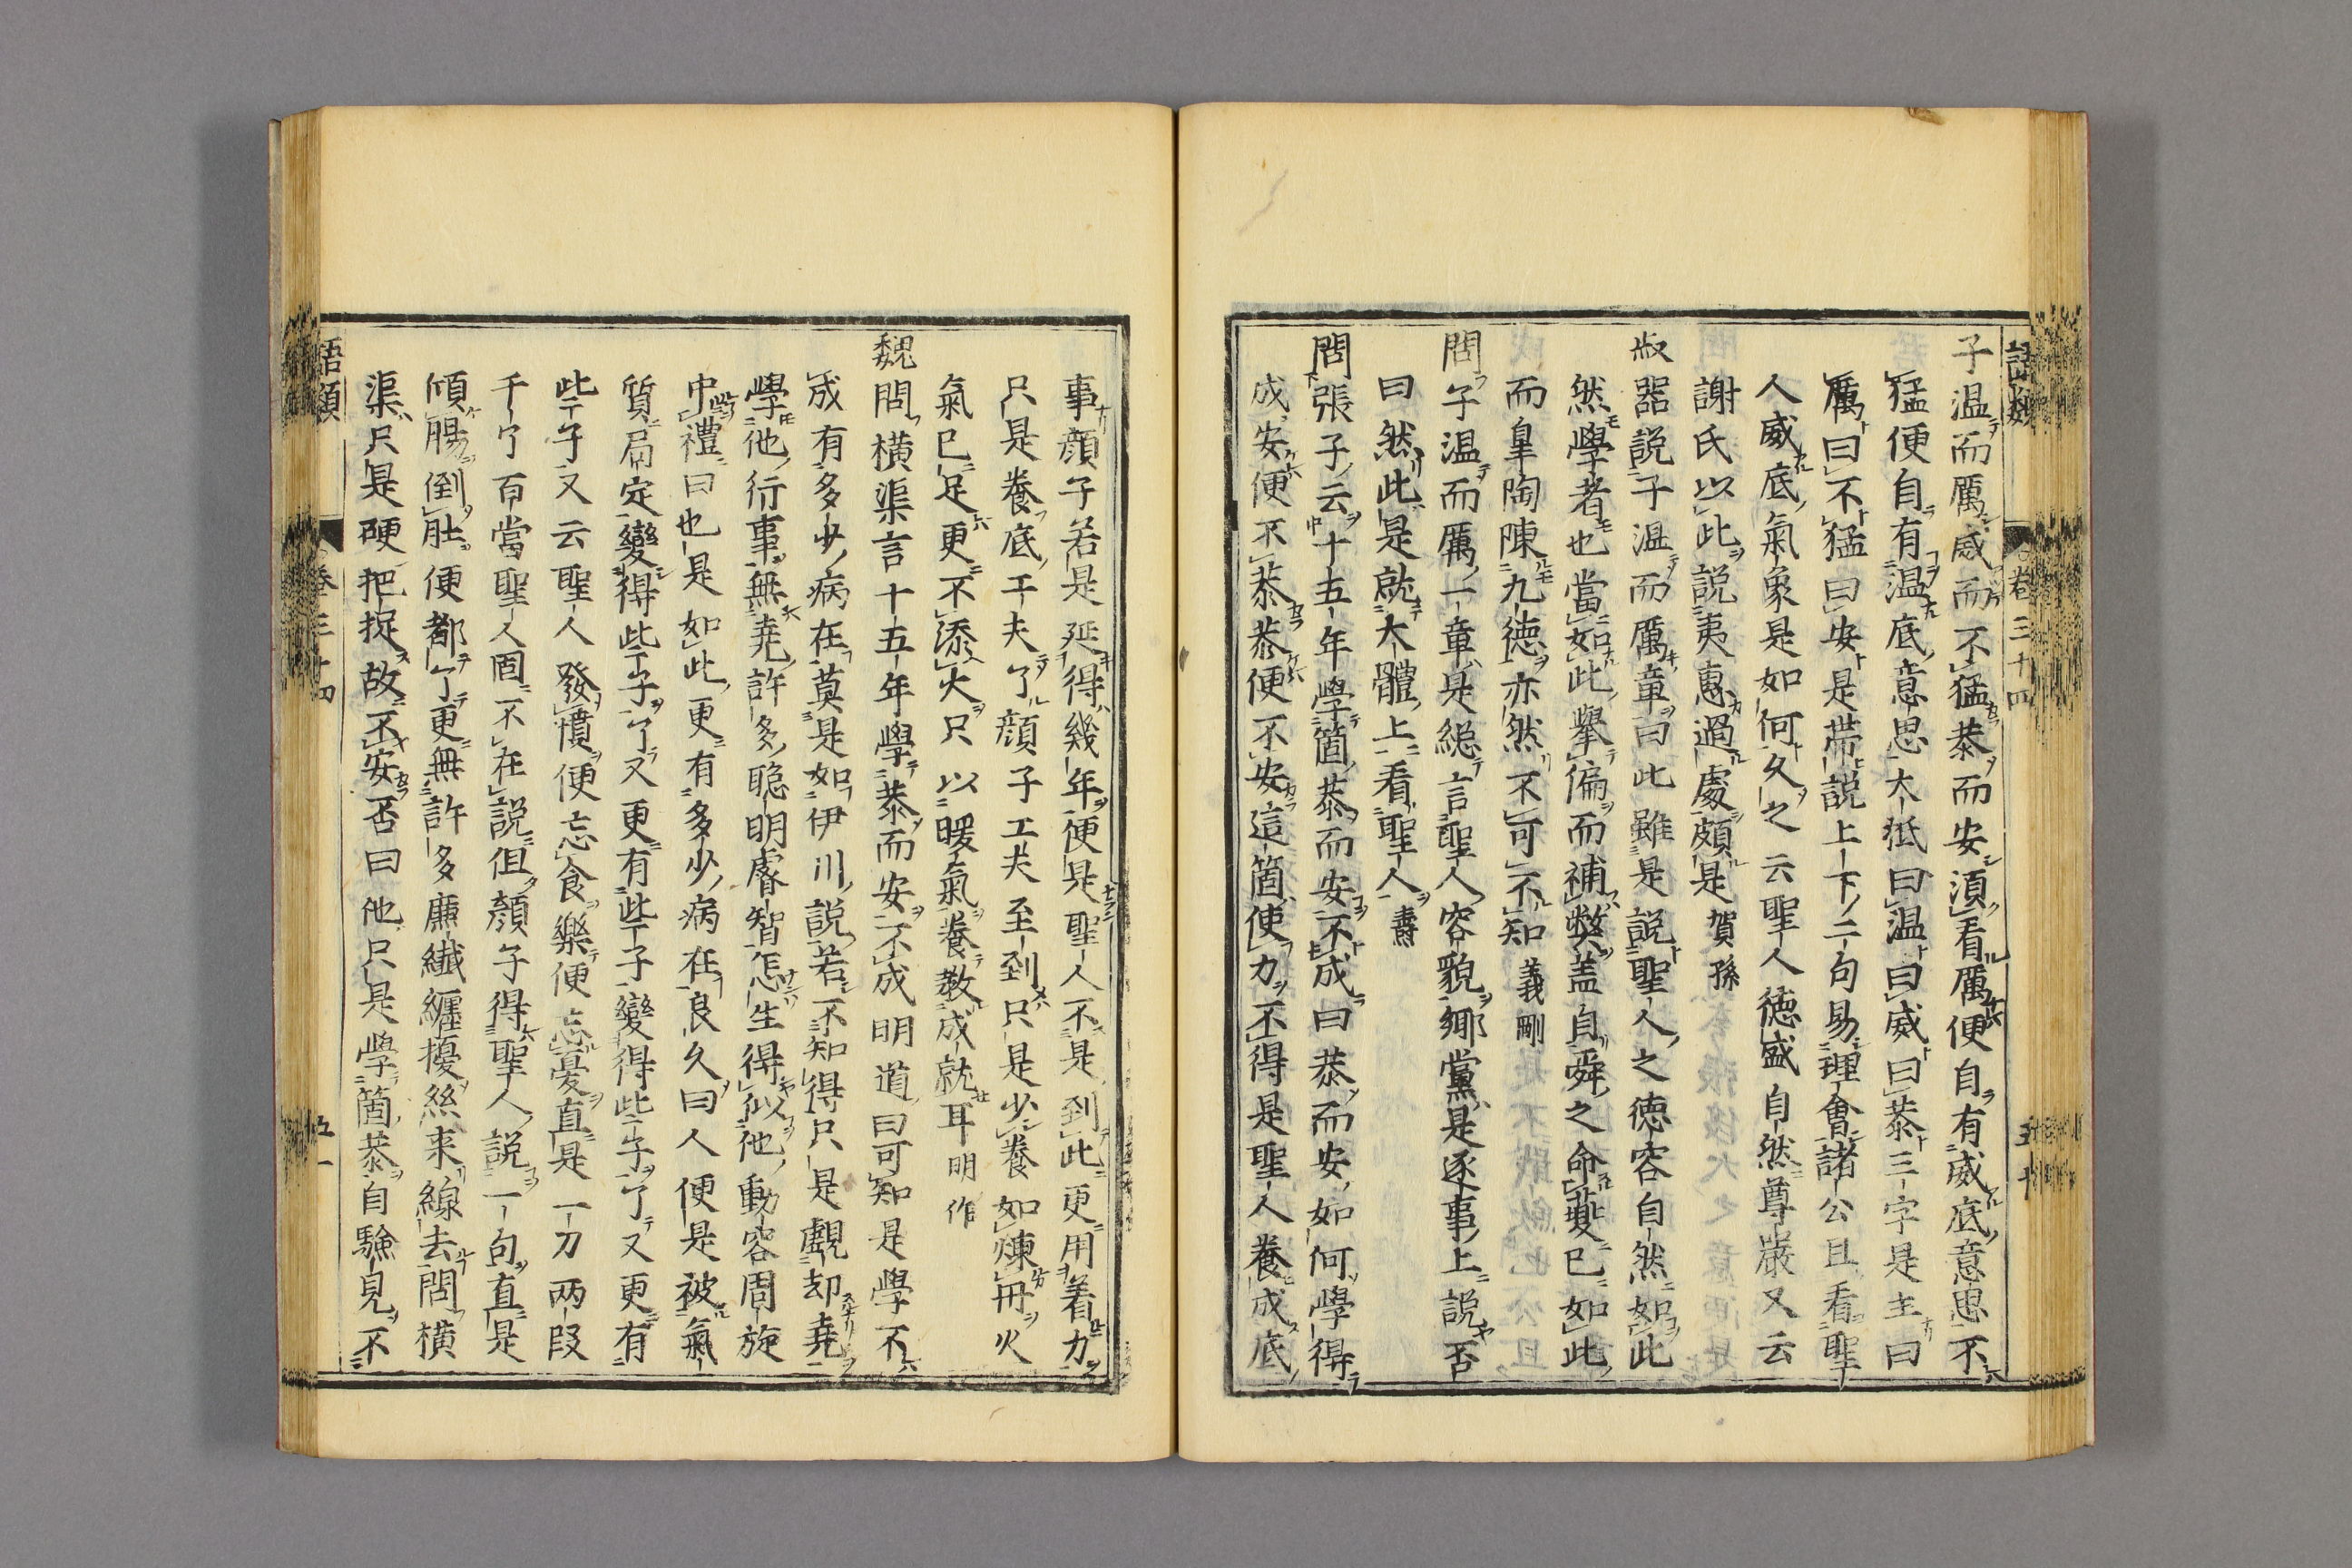 子温而厲威而不猛恭而安湏看厲便自有威底意思不
猛便自有温底意思大抵曰温曰威曰恭三字是主曰
厲曰不猛曰安是帯説上下二句易理會諸公且看聖
人威底氣象是如何久之云聖人徳盛自然尊嚴又云
謝氏以此説夷惠過處頗是賀孫
叔器説子温而厲章曰此雖是説聖人之徳容自然如此
然學者也當如此擧偏而補獘盖自舜之命夔已如此
而皐陶陳九徳亦然不可不知義剛
問子温而厲一章是緫言聖人容貌郷黨是逐事上説否
曰然此是就大體上看聖人燾
問張子云十五年學箇恭而安不成曰恭而安如何學得
成安便不恭恭便不安這箇使力不得是聖人養成底
事顔子若是延得幾年便是聖人不是到此更用着力
只是養底工夫了顔子工夫至到只是少養如煉丹火
氣已足更不添火只以暖氣養教成就耳明作
魏問横渠言十五年學恭而安不成明道曰可知是學不
成有多少病在莫是如伊川説若不知得只是覷却堯
學他行事無堯許多聡明睿智怎生得似他動容周旋
中禮曰也是如此更有多少病在良久曰人便是被氣
質局定變得些子了又更有些子變得些子了又更有
些子又云聖人發憤便忘食樂便忘憂直是一刀兩段
千了百當聖人固不在説但顔子得聖人説一句直是
傾腸倒肚便都了更無許多廉纎纒擾絲来線去問横
渠只是硬把捉故不安否曰他只是學箇恭自驗見不
語類
卷三十四